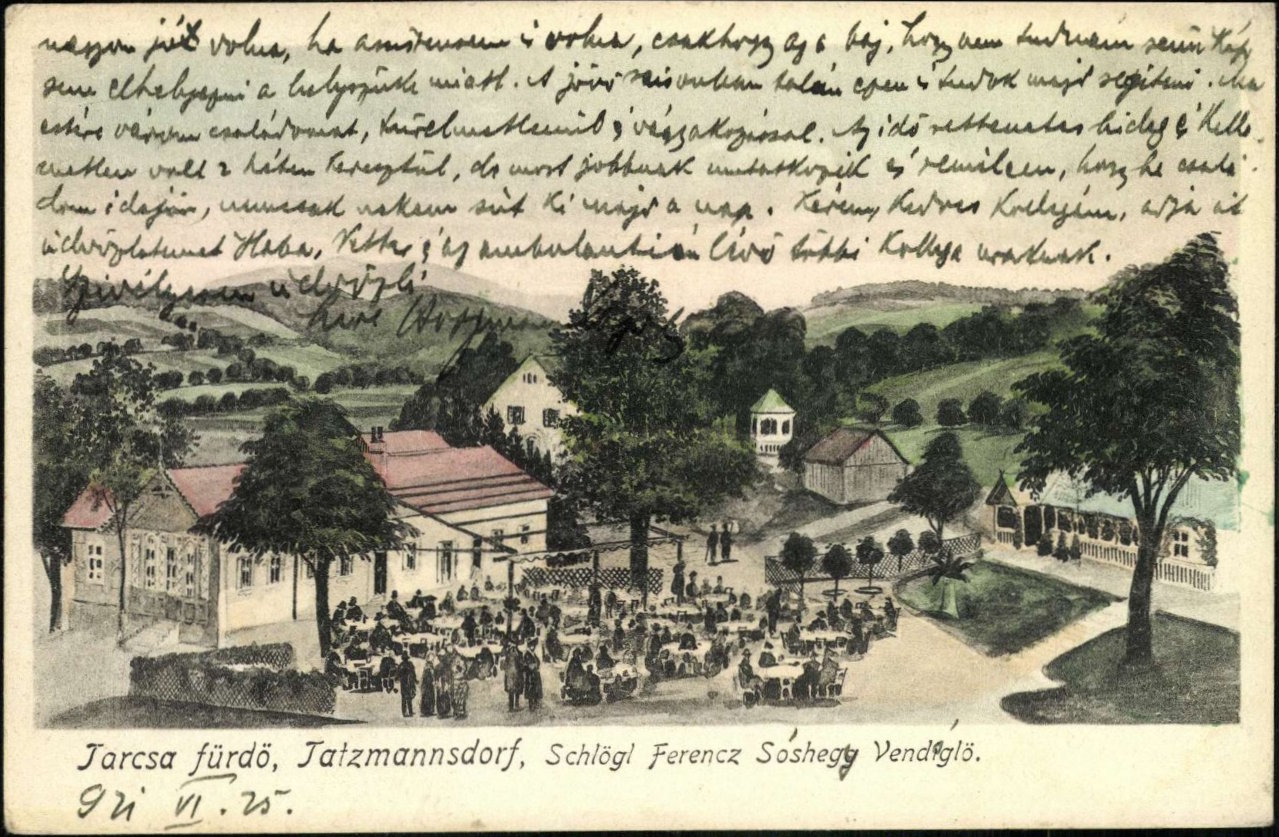 nagyon jó volna, ha asszisztensem is volna, csakhogy az a baj, hogy nem tudnám senkit
sem elhelyezni a helyszűke miatt. A jövő saisonban talán épen is tudok majd segíteni. Ma
estére várom családomat, türelmetlenül s vágyakozással. Az idő rettenetes hideg és kelle
metlen volt 2 héten keresztül, de most jobbnak mutatkozik és remélem, hogy ha csalá
dom idejön, nemcsak nekem süt ki majd a nap. Kérem, kedves kollegám, adja át
üdvözletemet Haba, és az ambulantián lévő többi kollega uraknak.
Szivélyesen üdvözli
híve
Tarcsa fürdő, Tatzmannsdorf, Schlögl Ferencz Sóshegy Vendéglő.
921 VI. 25.